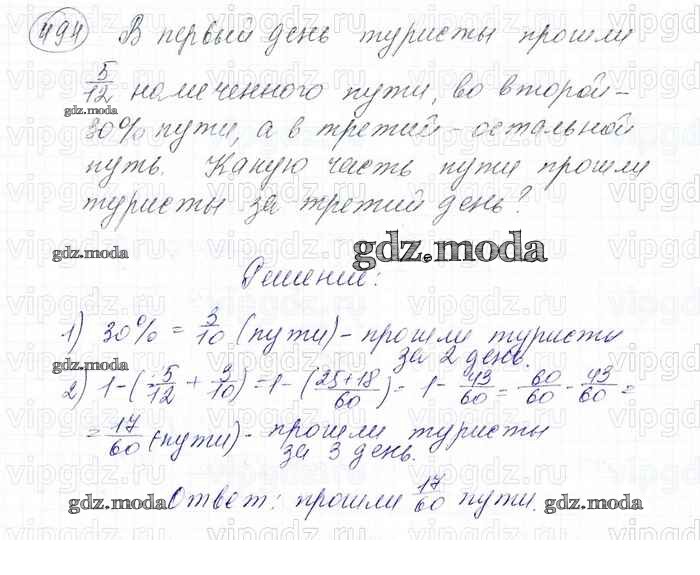 494 В первый день туристы прошли
5/12 намеченного пути, во второй -
30% пути, а в третий - остальной
путь. Какую часть пути прошли
туристы за третий день?
gdz.moda
gdz.moda
gdz.moda
Решение:
1) 30% = 3/10 (пути) - прошли туристы
за 2 день.
gdz.moda
2) 1-(5/12 + 3/10) = 1-(25+18/60) = 1-43/60 = 60/60 - 43/60 =
= 17/60 (пути) - прошли туристы
за 3 день.
Ответ: прошли 17/60 пути.
gdz.moda
gdz.moda
gdz.moda
vipgdz.ru